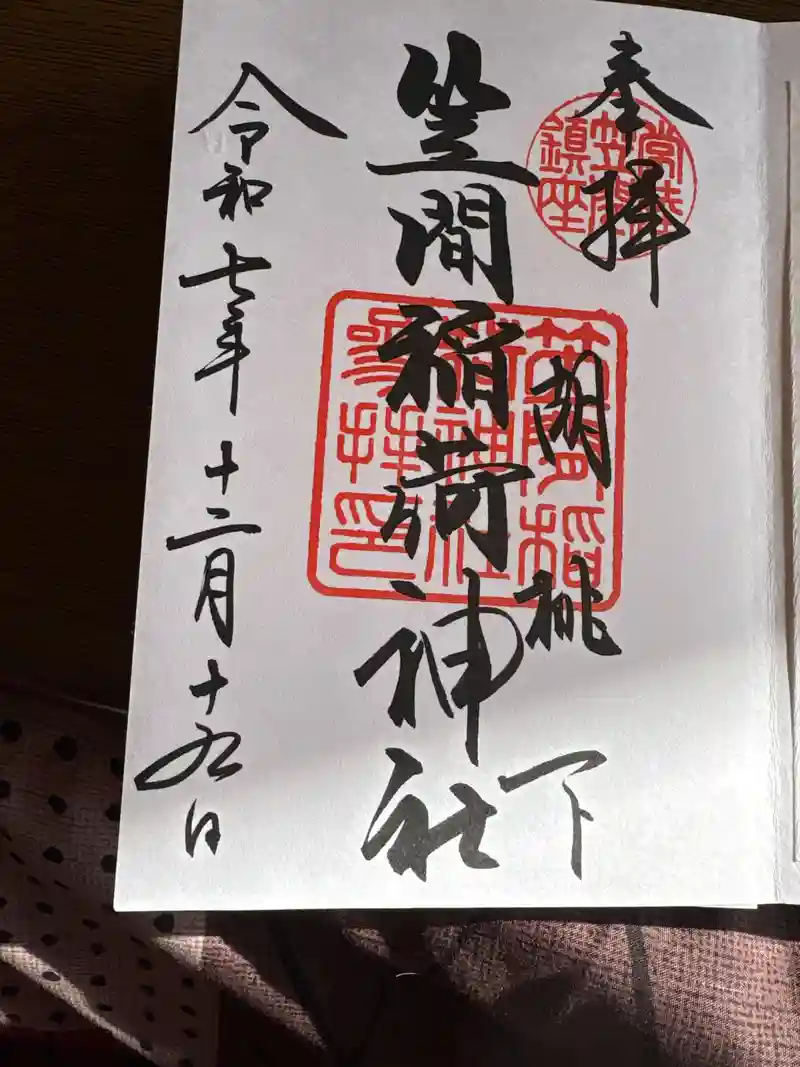 奉拝
胡桃下
笠間稲荷神社
令和七年十二月十九日
常陸
笠間
鎮座
笠間稲
荷神社
参拝之印